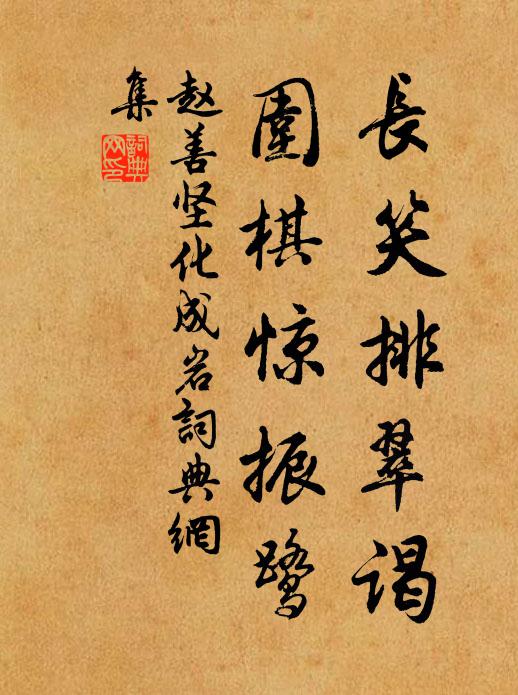 長笑排翠谒
圍棋惊振鹭
赵善坚化成岩詞典網
集
詞典
网印